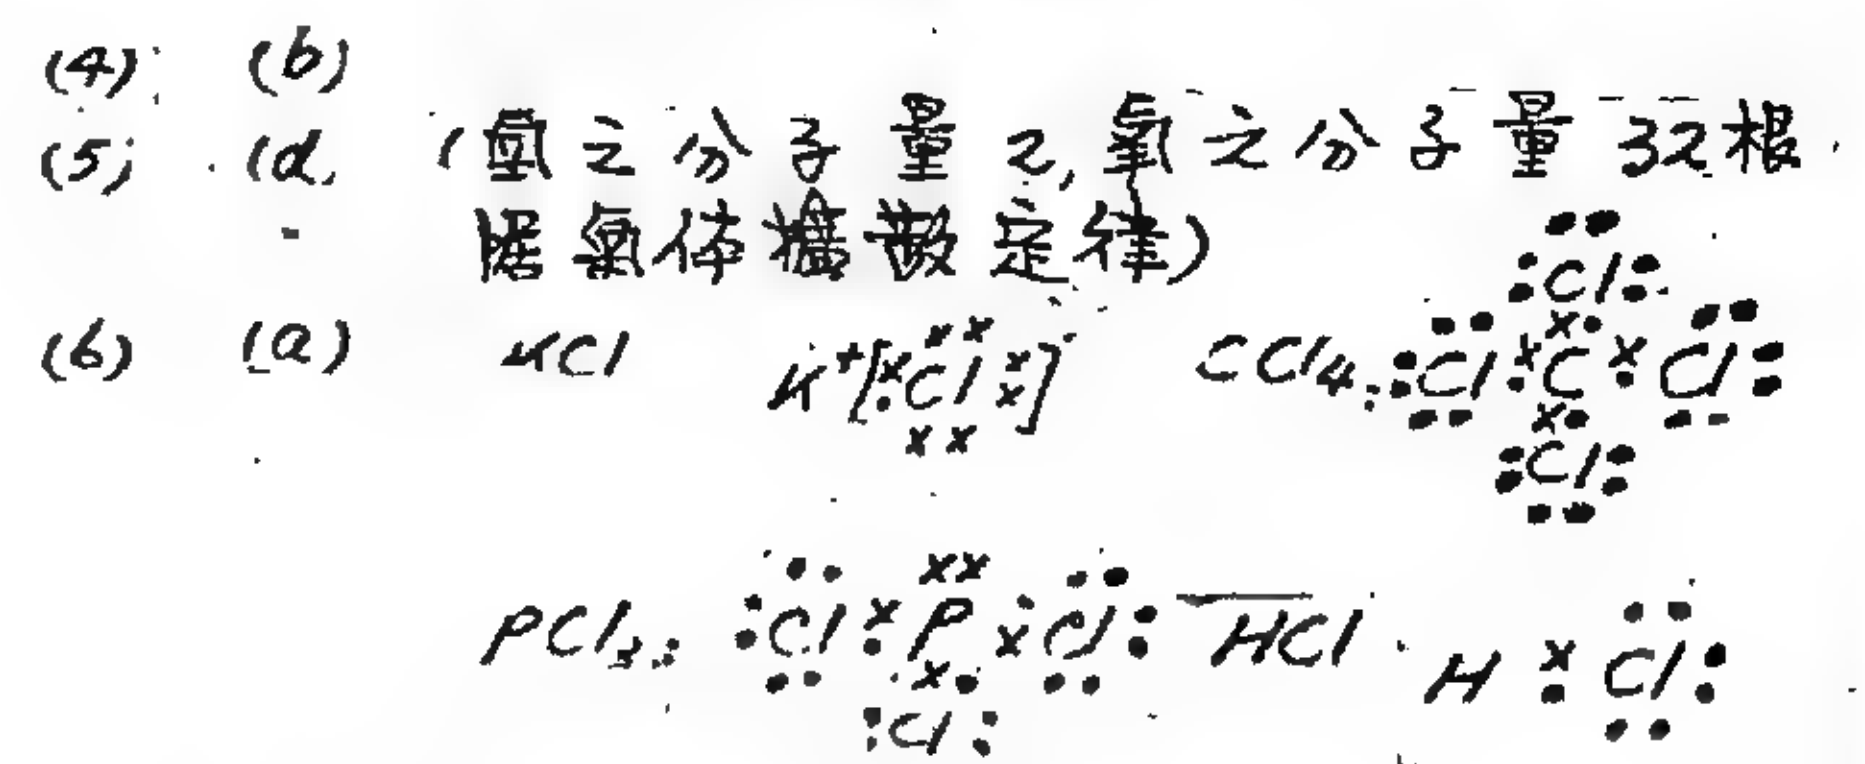 (4) (b)
(5) (d) (氫之分子量 2, 氧之分子量 32 根
據氣体擴散定律)
(6) (a) KCl K⁺[Cl]⁻ CCl₄: Cl C Cl
Cl
Cl
PCl₃: Cl P Cl HCl H Cl
Cl